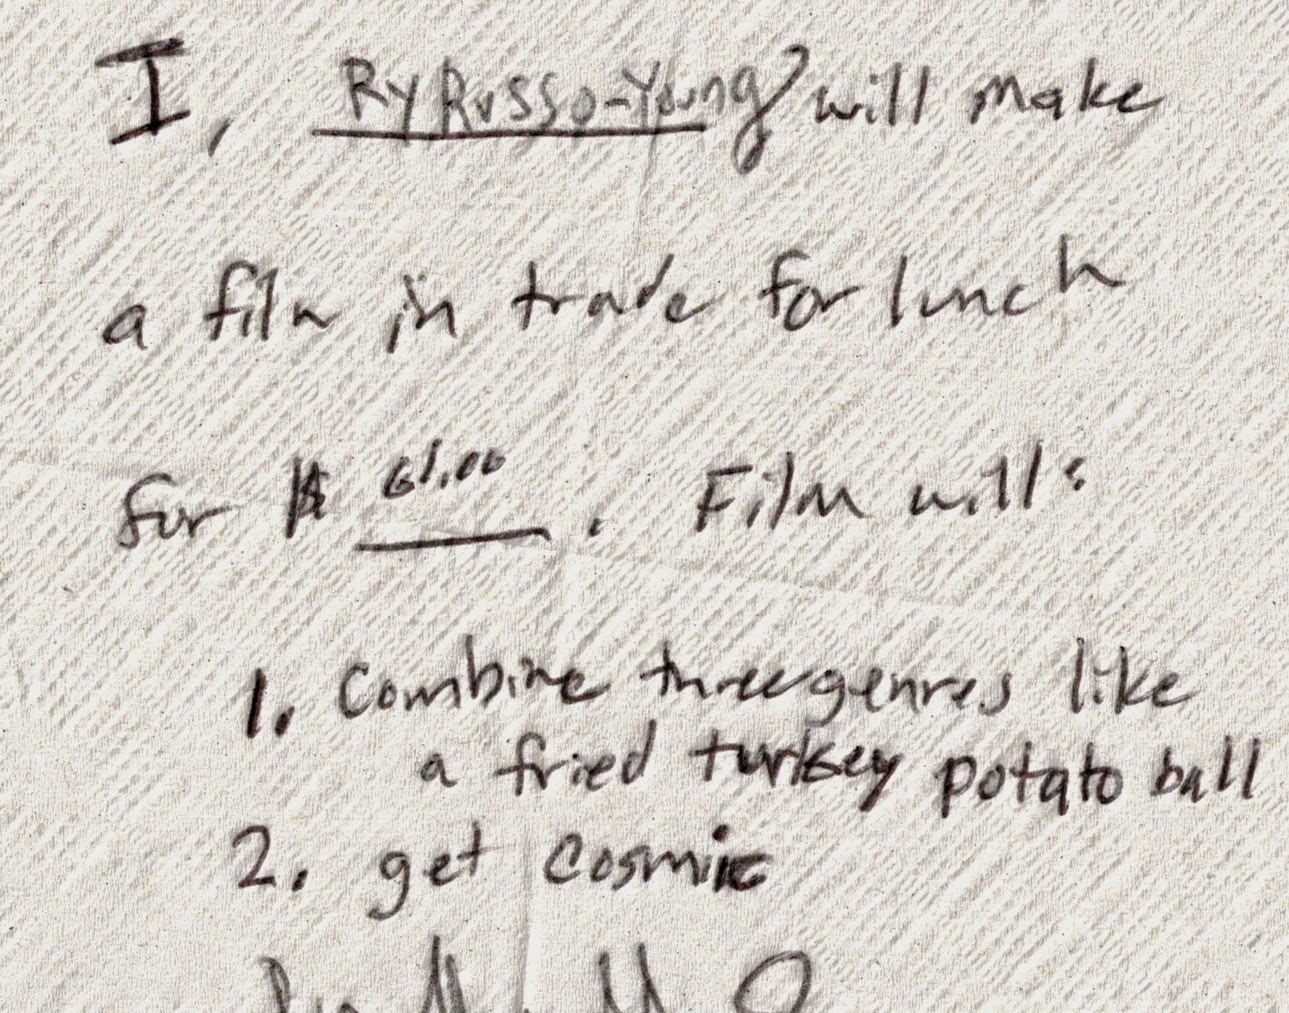 I, Ry Russo-Young will make
a film in trade for lunch
for $ 61.00 . Film will:
1. Combine three genres like
a fried turkey potato ball
2. get cosmic